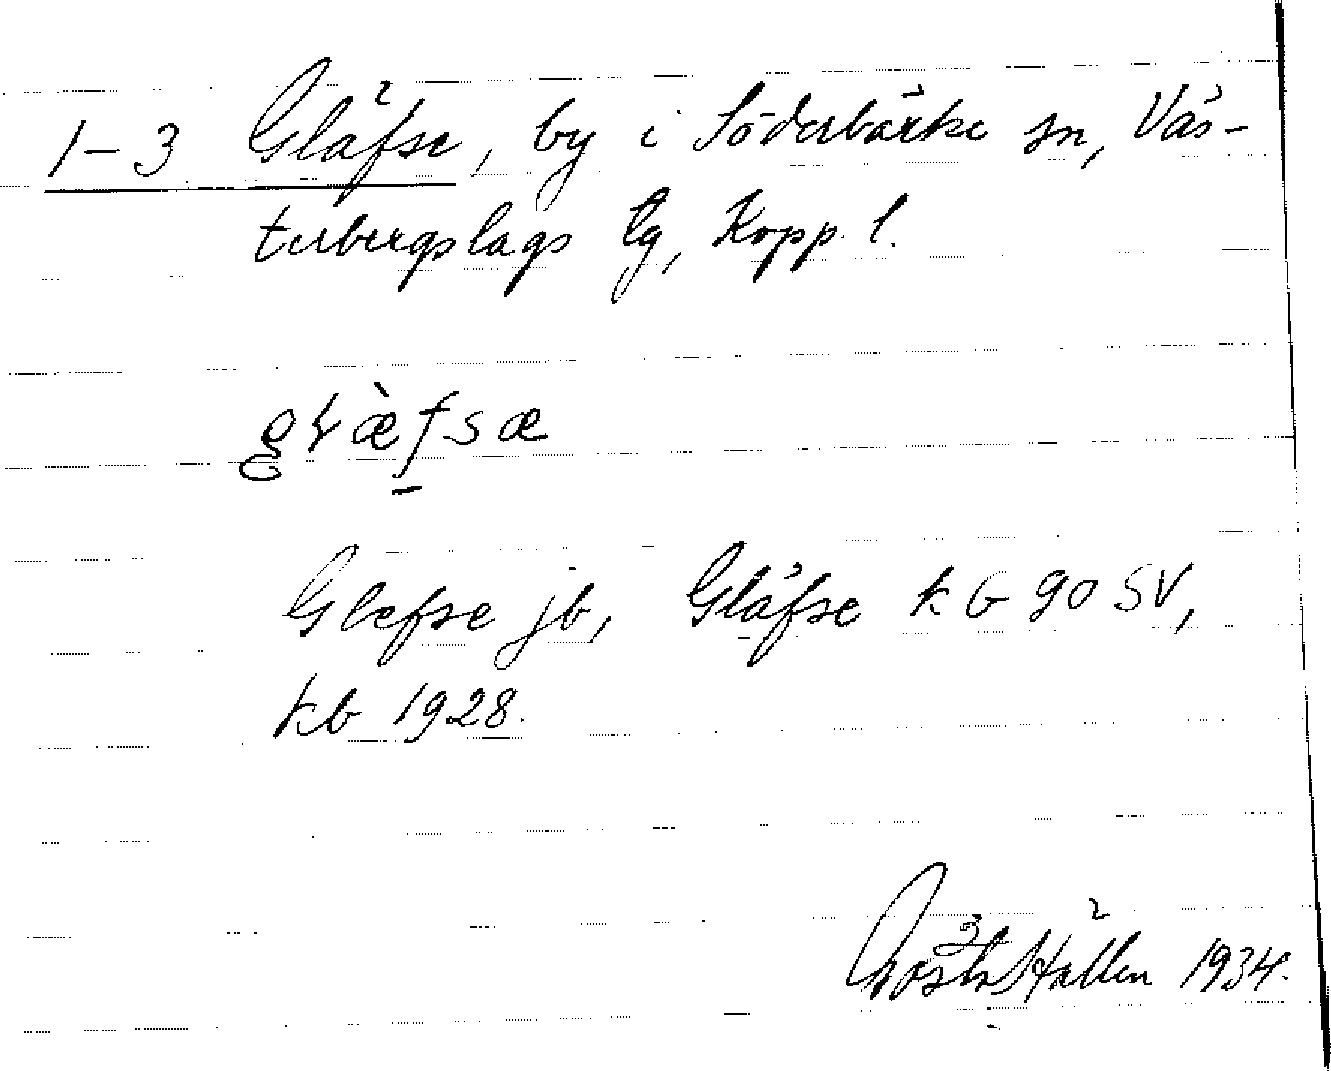 1-3 Gläfse, by i Söderbärke sn, Väs-
terbergslags tg, Kopp. l.
gɫæ̀fsæ
Glefse jb, Gläfse kb 90 SV,
kb 1928.
Gösta Hallén 1934.